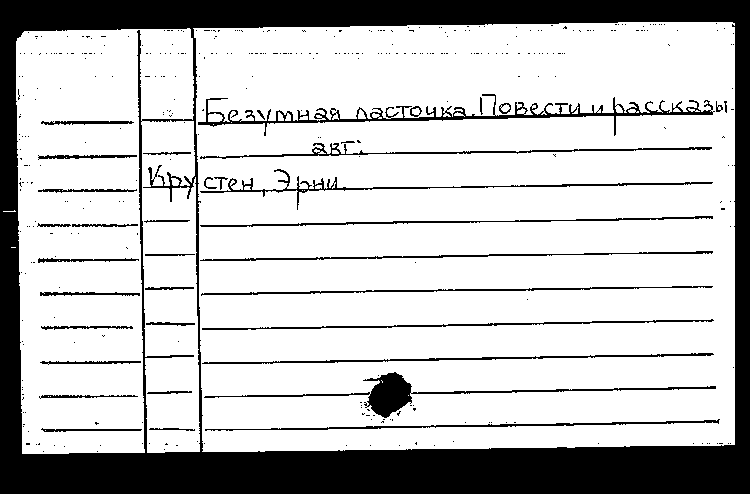 Безумная ласточка. Повести и рассказы.
авт:
Крустен, Эрни.